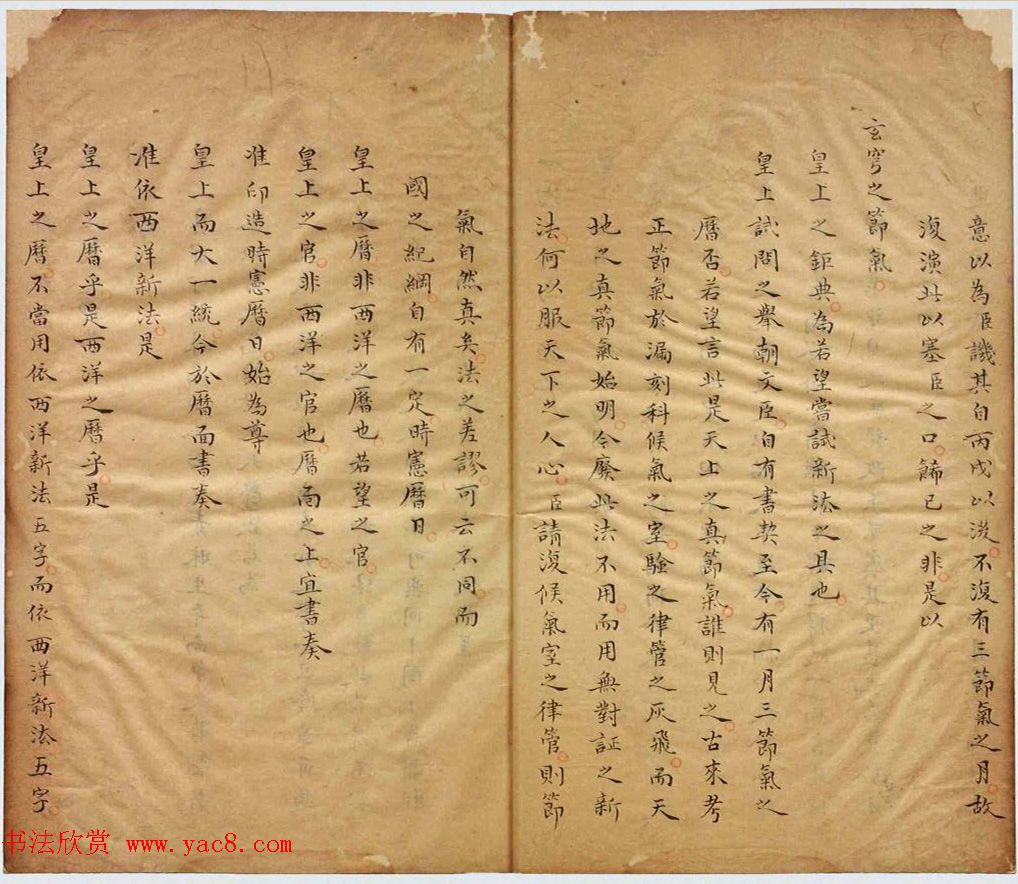 意以為臣譏其自丙戌以後不復有三節氣之月故
復演此以塞臣之口餙已之非是以
玄穹之節氣
皇上之鉅典為若望嘗試新法之具也
皇上試問之舉朝文臣自有書契至今有一月三節氣之
曆否若望言此是天上之真節氣誰則見之古來考
正節氣於漏刻科候氣之室驗之律管之灰飛而天
地之真節氣始明今廢此法不用而用無對証之新
法何以服天下之人心臣請復候氣室之律管則節
氣自然真矣法之差謬可云不同而
國之紀綱自有一定時憲曆日
皇上之曆非西洋之曆也若望之官
皇上之官非西洋之官也曆面之上宜書奏
准印造時憲曆日始為尊
皇上而大一統今於曆面書奏
准依西洋新法是
皇上之曆乎是西洋之曆乎是
皇上之曆不當用依西洋新法五字而依西洋新法五字
书法欣赏 www.yac8.com